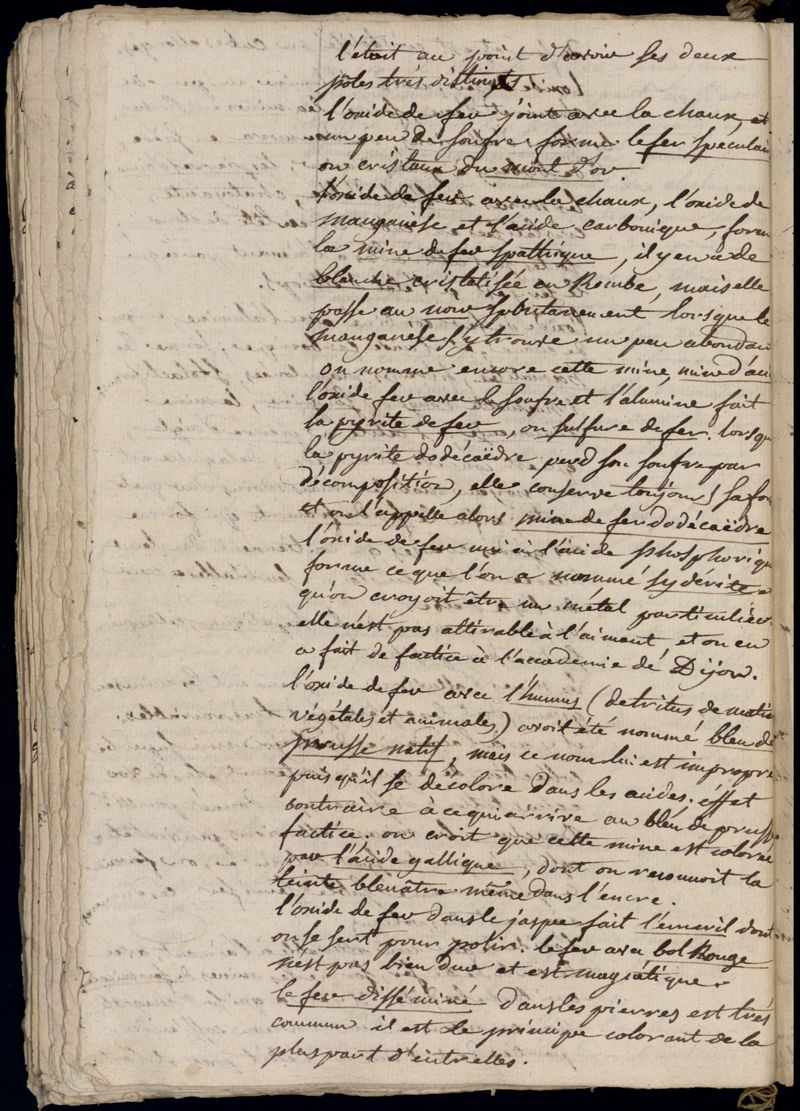 l'étoit au point d'avoir ses deux
poles très distincts.
l'oxide de fer jointe avec la chaux, et
un peu de soufre forme le fer spéculair
ou cristaux du mont d'or.
l'oxide de fer avec la chaux, l'oxide de
manganèse et l'acide carbonique, form
la mine de fer spathique, il y en a de
blanche cristalisée en Rombe, mais elle
passe au noir spontanement lorsque le
manganèse s'y trouve un peu abondan
on nomme encore cette mine, mine d'aci
l'oxide fer avec le soufre et l'alumine fait
la pyrite de fer, ou sulfure de fer. lorsqu
la pyrite dodécaèdre perd son soufre par
décomposition, elle conserve toujours sa for
et on l'appelle alors mine de fer dodécaèdre
l'oxide de fer uni à l'acide phosphoriqu
forme ce que l'on a nommé sydérite
qu'on croyoit être un métal particulier
elle n'est pas attirable à l'aimant, et on en
a fait de factice à l'accademie de Dijon.
l'oxide de fer avec l'humus (detritus de matie
végétales et animales) avoit été nommé bleu de
prusse natif, mais ce nom lui est impropre
puisqu'il se décolore dans les acides, effet
contraire à ce qui arrive au bleu de prusse
factice. on croit que cette mine est colorée
par l'acide gallique, dont on reconnoit la
teinte bleuâtre même dans l'encre.
l'oxide de fer dans le jaspe fait l'émeril dont
on se sert pour polir. le fer avec bol Rouge
n'est pas bien dur et est magnétique.
le fer disséminé dans les pierres est très
commun il est le principe colorant de la
pluspart d'entr'elles.